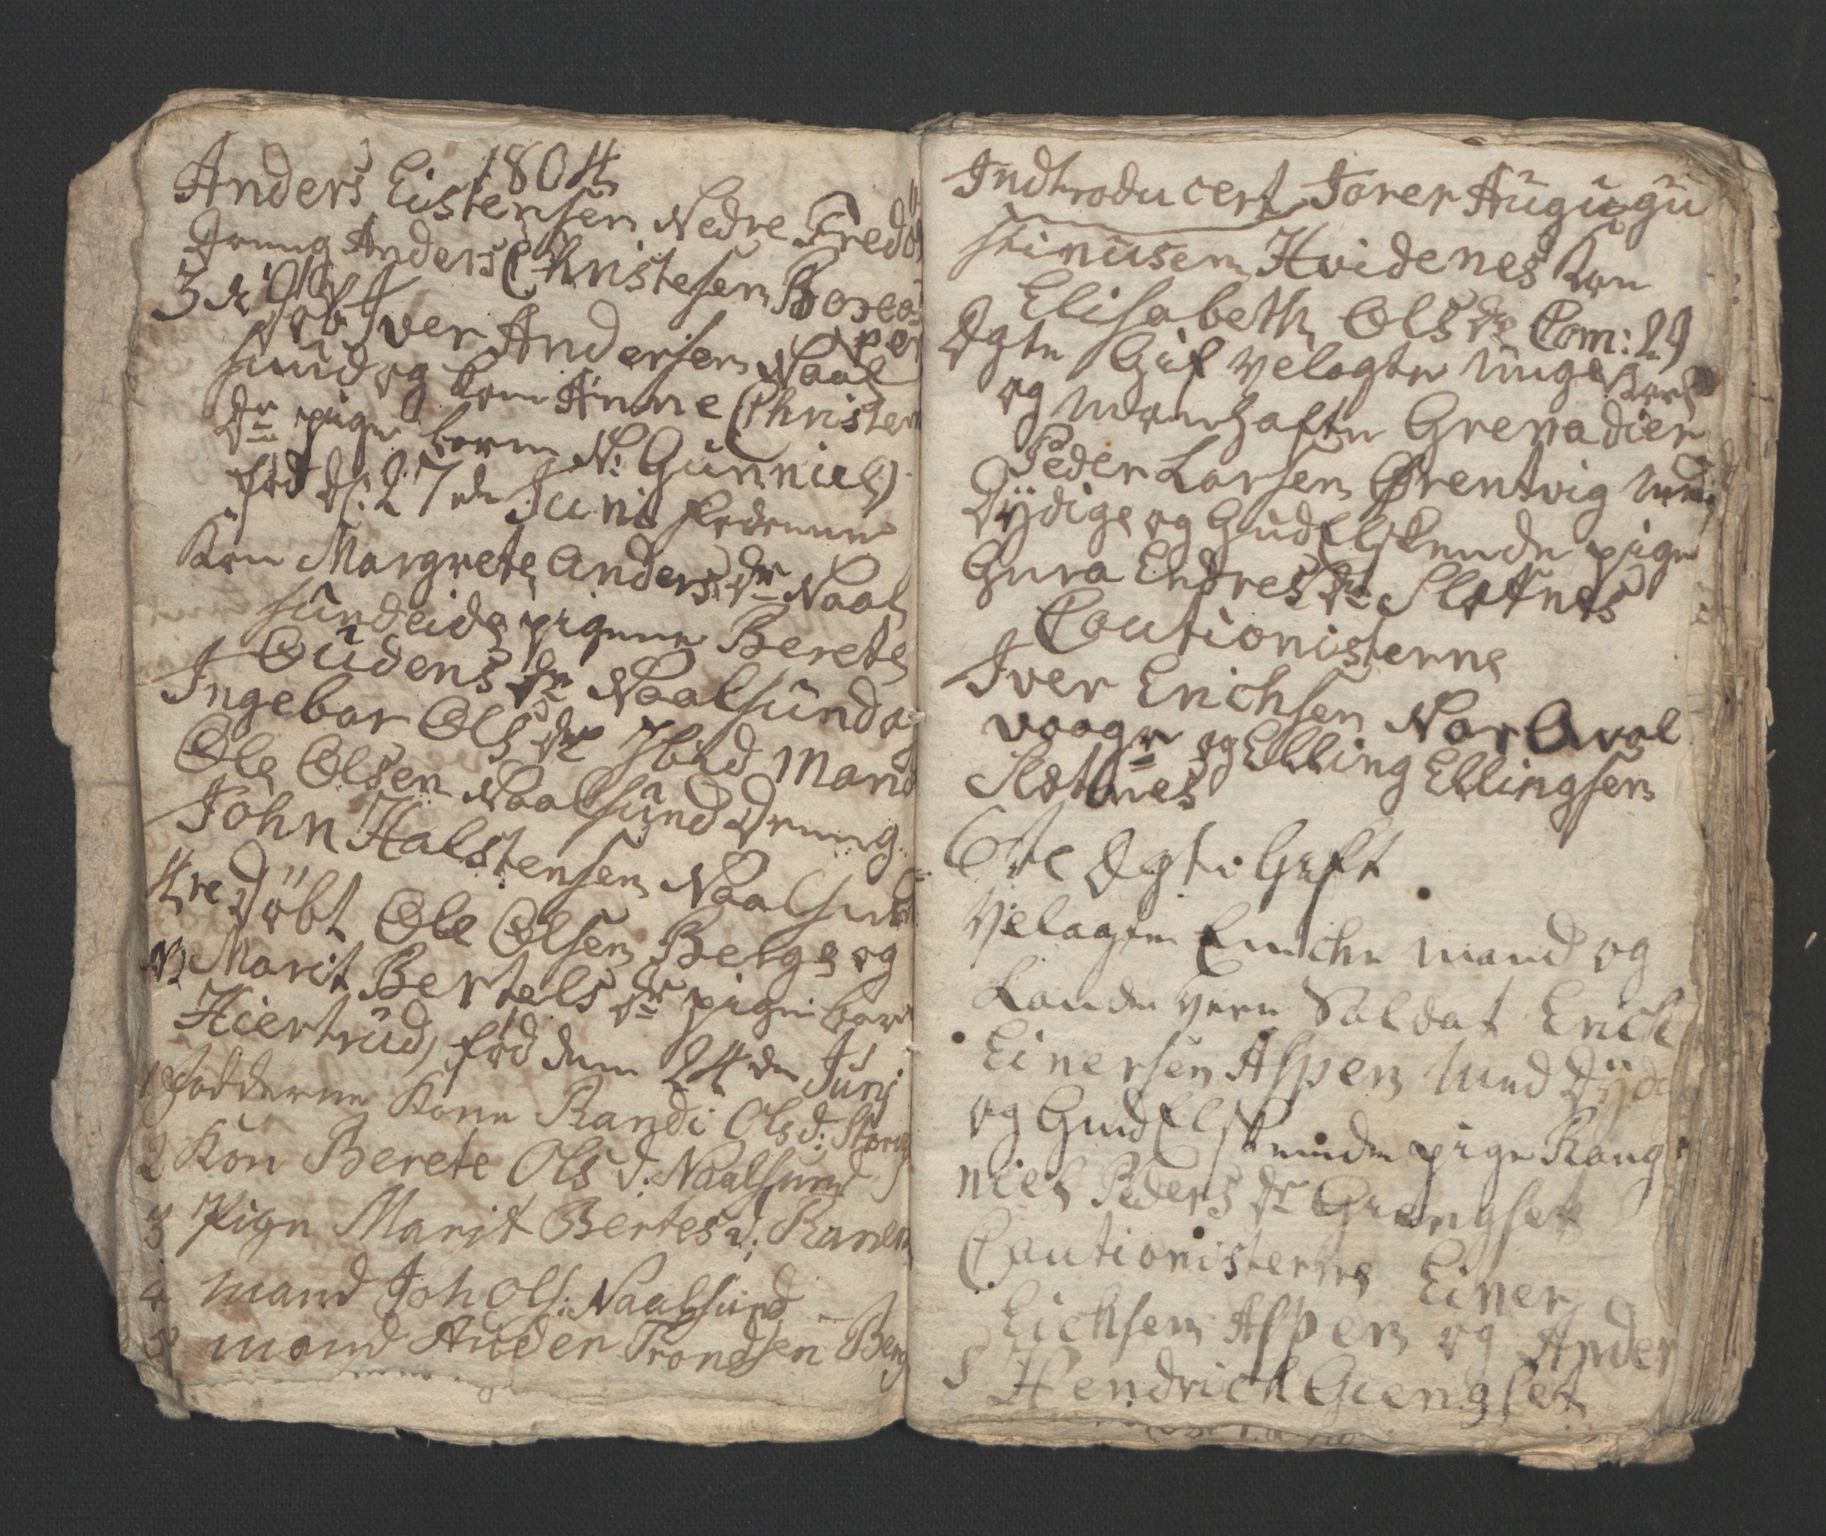 1804
Anders Eistensen Nedre Fredø
Dreng Anders Christesen Boreøs
3de Døbt Iver Andersen Naal
sund og Kone Anne Christen
Dr pige barn N: Gunnild
fød d: 27de Juni Fadderne
Kone Margrete Anders Dr Naal
sundeide pigerne Berete
Oudens Dr Naalsund og
Ingebor Ols Dr Ibid Mand
Ole Olsen Naalsund Dreng
John Halstensen Naalsund
4re Døbt Ole Olsen Berge og
Marit Bertels Dr pige barn
Hiertrud, fød den 24de Juni
1 Fadderne Kone Randi Olsd: Stor
2 Kone Berete Olsd: Naalsund
3 Pige Marit Bertesd: Ranem
4 mand Joh Ols: Naalsund
5 mand Auden Trondsen Berg
Indtroducert Torer Augugu
stinusen Hvidenes Kone
Elisabeth Ols Dr Com: 29
Ægte Gif Velagte unge Karl
og Manhafte Grenadier
Peder Larsen Ørentvig med
Dydige og Gudelskende pige
Gura Endres Dr Slotnes
Cautionisterne
Iver Erichsen Nor Qval
vaagn og Elling Ellingsen
Slotnes
6te Ægte Gift
Velagte Enche mand og
Lande vern Soldat Erich
Einersen Aspen med Dyde
og Gudelskende pige Rang
niel Peders Dr Giengset
Cautionisterne Einer
Eichsen Aspen og Ander
s Hendrich Giengset